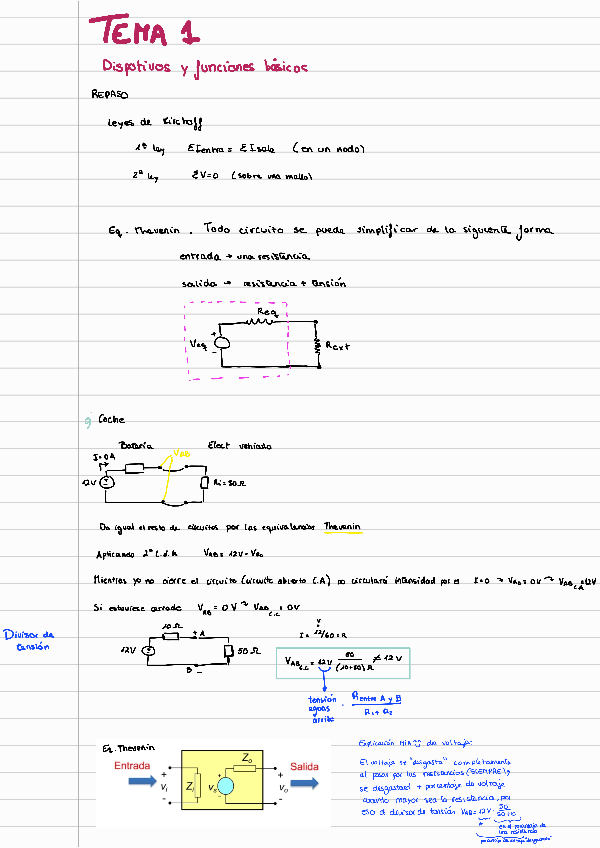 TEMA 1
Dispotivos y funciones básicos
REPASO
Leyes de Kirchoff
1ª ley ΣIentra = ΣIsale (en un nodo)
2ª ley ΣV=0 (sobre una malla)
Eq. Thevenin. Todo circuito se puede simplificar de la siguiente forma
entrada → una resistencia
salida → resistencia + tensión
Req
+
Veq
-
Rext
Coche
Batería Elect vehículo
VAB
I=0A
12V
Ri=50Ω
Da igual el resto de circuitos por las equivalencias Thevenin
Aplicando 2ª L.d.K
Mientras yo no cierre el circuito (circuito abierto C.A) no circulará intensidad por él
Si estuviese cerrado
Divisor de
tensión
10Ω
+ A
12V
50Ω
B -
I = 12/60 = R
VAB = 12V 50/(10+50)Ω ≠ 12V
tensión
aguas
arriba
Rentre A y B
R1 + R2
Eq. Thevenin
Entrada
Salida
+
Vi
-
Zi
Vo
Zo
+
Vo
-
Explicación MIA de voltaje:
El voltaje se "desgasta" completamente
al pasar por las resistencias (SIEMPRE),
se desgastará + porcentaje de voltaje
cuanto mayor sea la resistencia, por
eso el divisor de tensión VAB = 12V · 50/50+10
es el porcentaje de
una resistencia